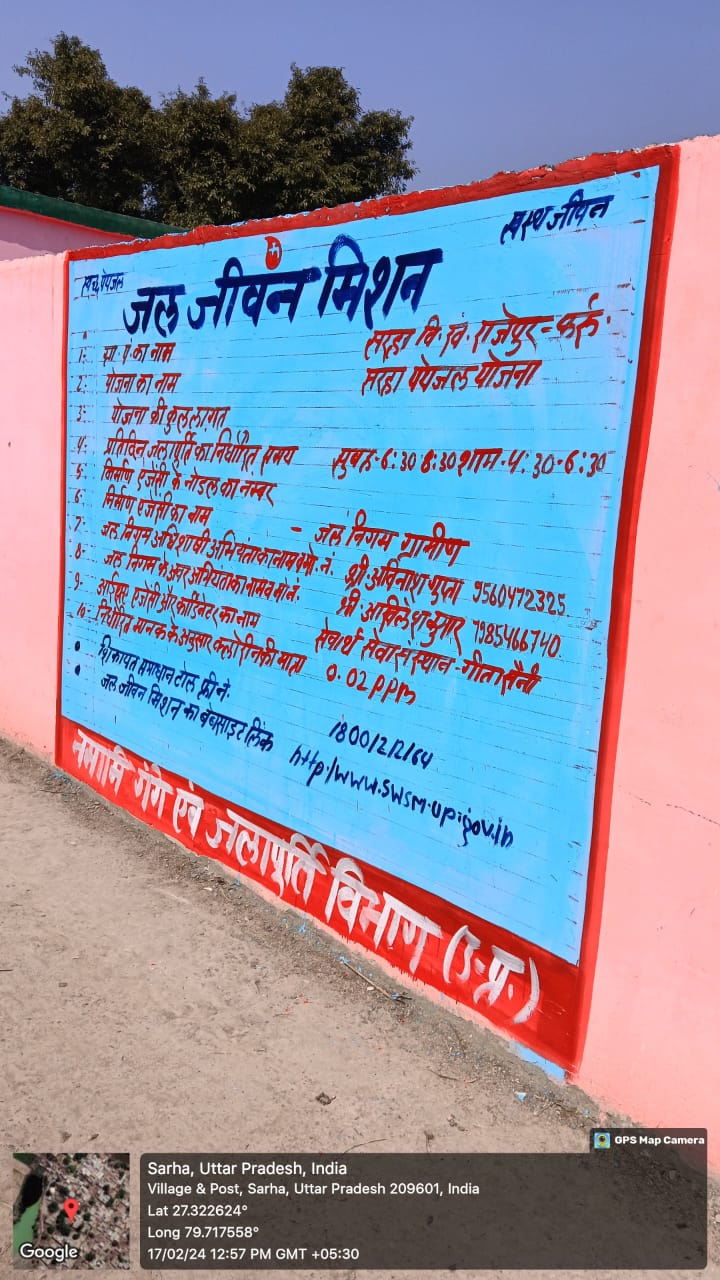 स्वच्छ पेयजल
स्वस्थ जीवन
जल जीवन मिशन
1- ग्रा. पं. का नाम सरहा वि. खं. राजेपुर - फर्रु.
2- योजना का नाम सरहा पेयजल योजना
3- योजना की कुल लागत
4- प्रतिदिन जलापूर्ति का निर्धारित समय सुबह-6:30 8:30 शाम-4:30-6:30
5- निर्माण एजेंसी के नोडल का नम्बर
6- निर्माण एजेंसी का नाम - जल निगम ग्रामीण
7- जल निगम अधिशाषी अभियंता का नाम व मो. नं. श्री अविनाश गुप्ता 9560472325
8- जल निगम के अवर अभियंता का नाम व मो नं. श्री अखिलेश कुमार 7985466740
9- आईएसए एजेंसी और कार्डिनेटर का नाम सेवार्थ सेवा संस्थान - गीता सैनी
10- निर्धारित मानक के अनुसार क्लोरीन की मात्रा 0.02 PPm
• शिकायत समाधान टोल फ्री नं. 18001212164
• जल जीवन मिशन का वेबसाइट लिंक http/www.swsm.up.gov.in
नमामि गंगे एवं जलापूर्ति विभाग (उ.प्र.)
GPS Map Camera
Sarha, Uttar Pradesh, India
Village & Post, Sarha, Uttar Pradesh 209601, India
Lat 27.322624°
Long 79.717558°
17/02/24 12:57 PM GMT +05:30
Google